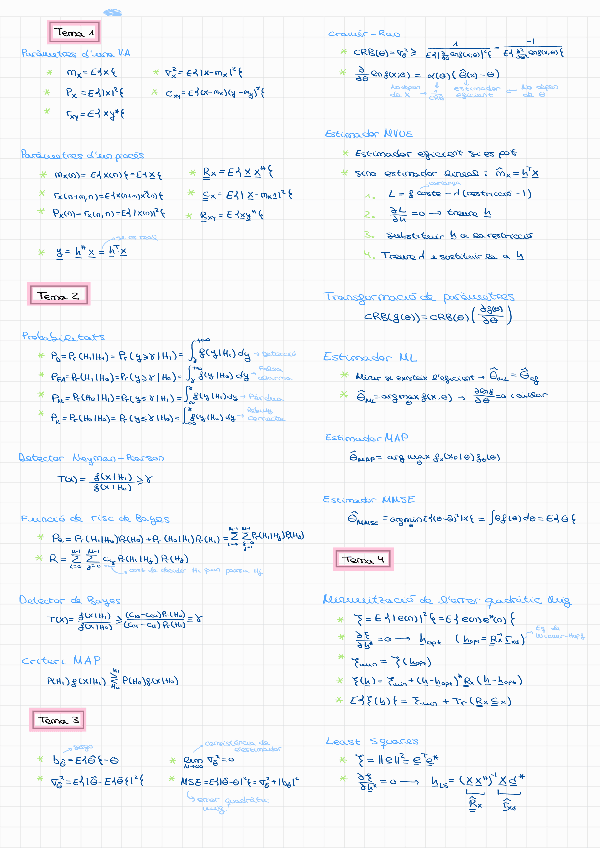 Tema 1
Paràmetres d'una VA
* mx = E{x}
* σx² = E{|x-mx|²}
* Px = E{|x|²}
* cxy = E{(x-mx)(y-my)*}
* rxy = E{xy*}
Paràmetres d'un procés
* mx(n) = E{x(n)} = E{x}
* Rx = E{x xᴴ}
* rx(n+m,n) = E{x(n+m)x*(n)}
* Cx = E{|x-mx1|²}
* Px(n) = rx(n,n) = E{|x(n)|²}
* Rxy = E{xyᴴ}
* y = hᴴ x = hᵀ x
Tema 2
Probabilitats
* PD = Pr(H1|H1) = Pr(y≥γ|H1) = ∫ f(y|H1) dy → Detecció
* PFA = Pr(H1|H0) = Pr(y≥γ|H0) = ∫ f(y|H0) dy → Falsa alarma
* Pr(H0|H1) = Pr(y≤γ|H1) = ∫ f(y|H1) dy → Pèrdua
* Pr(H0|H0) = Pr(y≤γ|H0) = ∫ f(y|H0) dy
Detector Neyman-Pearson
T(x) = f(x|H1) / f(x|H0) ≥ γ
Funció de risc de Bayes
* Pe = Pr(H1|H0)Pr(H0) + Pr(H0|H1)Pr(H1) = Σ Σ Pr(Hi|Hj)Pr(Hj)
* R = Σ Σ cij Pr(Hi|Hj) Pr(Hj)
cost de decidir Hi quan passa Hj
Detector de Bayes
T(x) = f(x|H1) / f(x|H0) ≥ (c10-c00)Pr(H0) / (c01-c11)Pr(H1) = γ
Criteri MAP
P(H1) f(x|H1) ≷ P(H0) f(x|H0)
Tema 3
biaix
consistència de l'estimador
* bθ = E{θ̂} - θ
* lim σθ² = 0
* σθ² = E{|θ̂ - E{θ̂}|²}
* MSE = E{|θ̂-θ|²} = σθ² + |bθ|²
error quadràtic mig
Cramér-Rao
* CRB(θ) = σθ² ≥ 1 / E{|∂/∂θ ln f(x,θ)|²} = -1 / E{∂²/∂θ² ln f(x,θ)}
* ∂/∂θ ln f(x,θ) = α(θ)(θ̂(x) - θ)
No depèn de x
CRB
estimador eficient
No depèn de θ
Estimador MVUE
* Estimador eficient si es pot
* Sinó estimador lineal: m̂x = hᵀx
1. L = f coste - λ(restricció - 1)
2. ∂L/∂h = 0 → treure h
3. substituir h a la restricció
4. Treure λ i substituir-la a h
Transformació de paràmetres
CRB(g(θ)) = CRB(θ) (∂g(θ)/∂θ)
Estimador ML
* Mirar si existeix l'eficient → θ̂ML = θ̂ef
* θ̂ML = arg max f(x,θ) → ∂ln f/∂θ = 0
Estimador MAP
θ̂MAP = arg max fx(x|θ) fθ(θ)
Estimador MMSE
θ̂MMSE = argmin E{(θ-θ̂)²|x} = ∫θ f(θ) dθ = E{θ}
Tema 4
Minimització de l'error quadràtic mig
* ξ = E{|e(n)|²} = E{e(n)e*(n)}
* ∂ξ/∂h* = 0 → hopt (hopt = Rx⁻¹ rxd)
eq de Wiener-Hopf
* ξmin = ξ(hopt)
* ξ(h) = ξmin + (h-hopt)ᴴ Rx (h-hopt)
* E{ξ(h)} = ξmin + Tr(Rx Cx)
Least Squares
* ξ = ||e||² = eᵀ e*
* ∂ξ/∂h* = 0 → hLS = (X Xᴴ)⁻¹ X d*
R̂x r̂xd